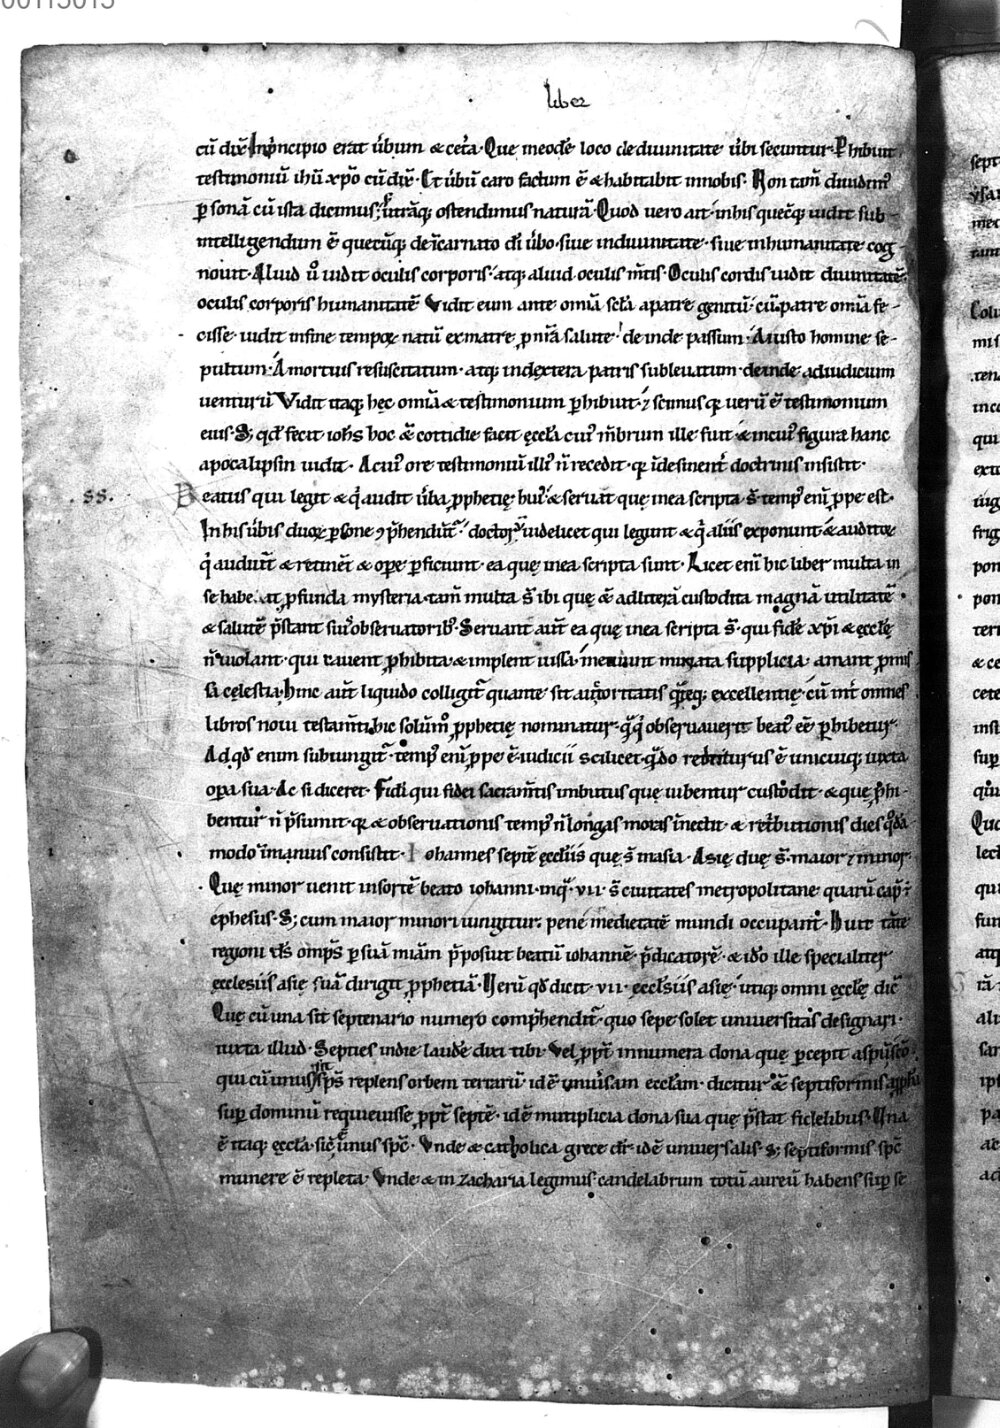 00113013
liber
cū dix̄ Inp̄ncipio erat ūbum & cet̄a. Que ineodē loco de diuinitate ūbi secuntur. Phibuit
testimoniū ihū xp̄o cū dix̄. Et ūbū caro factum ē & habitabit innobis. Non tam̄ diuidim᷒
p̱sonā cū ista dicimus, s; utrāq; ostendimus naturā. Quod uero ait. inhis quecūq; uidit sub-
intelligendum ē quecūq; de īcarnato dī ūbo. siue indiuinitate. siue inhumanitate cog-
nouit. Aliud u̅ uidit oculis corporis. atq; aliud oculis m̄tis. Oculis cordis uidit diuinitatē.
oculis corporis humanitatē Vidit eum ante om̄ia scl̄a apatre genitū. cū patre om̄ia fe-
cisse. uidit infine tempoꝝ natū exmatre, p̱ nr̄a salute. deinde passum. A iusto homine se-
pultum. A mortuis resuscitatum. atq; indextera patris subleuatum. deinde adiudicium
uenturū Vidit itaq; hęc om̄ia & testimonium p̱hibuit. & scimus q̱ uerū ē testimonium
eius. S; qd̄ fecit ioh̄s hoc & cottidie facit ęccl̄a cui᷒ m̄brum ille fuit & incui᷒ figura hanc
apocalipsin uidit. A cui᷒ ore testimoniū illi᷒ n̄ recedit. q̱ īdesinent̄ doctrinis insistit.
.ss. Beatus qui legit & q̇ audit ūba, p̱phetię. hui᷒ & seruat quę inea scripta s̄. temp᷒ eni̅ p̱pe est.
In his ūbis duę p̱sone ꝯp̄hendunt̄. doctoꝝ uidelicet qui legunt & q̇ aliis exponunt & auditoꝝ
q̇ audiūt & retinēt & ope p̱ficiunt. ea quę inea scripta sunt. Licet eni̅ hic liber multa in
se habeat p̱funda mysteria tam̄ multa s̄ ibi quę & adliterā custodita magnā utilitatē
& salutē p̄stant sui᷒ obseruatorib᷒. Seruant aut̄ ea quę inea scripta s̄. qui fidē xp̄i & ęccl̄ę
n̄ uiolant. qui cauent p̱hibita & implent iussa. metuunt minata supplicia. amant p̱mis
sa cęlestia. Hinc aut̄ liquido colligit̄ quante sit auctoritatis q̄nteq; excellentię. cū int̄ omnes
libros noui testam̄ti hic solūm᷒, p̱phetię nominatur. q̄ q̇ obseruauerit beat᷒ eē p̱hibetur.
Ad qd̄ enim subiungit̄. temp᷒ eni̅ p̱pe ē. iudicii scilicet. q̄do redditurus ē unicuiq; iuxta
opa sua. Ac si diceret. Fidi qui fidei sacram̄tis imbutus quę iubentur custodit. & quę p̱hi-
bentur n̄ p̄sumit. q̱ & obseruationis temp᷒ n̄ longas moras īnectit. & retbutionis dies q̇dā
modo īmanus consistit. Iohannes septē ęccl̄iis quę s̄ inasia. Asię duę s̄. maior & minor.
Quę minor uenit insortē beato iohanni. inq̇ .vii. s̄ ciuitates metropolitane quarū cap̄ ē
ephesus. S; cum maior minori iungitur. pene medietatē mundi occupant. Huic itaē
regioni d̄s omp̄s p̱ suā mīam p̄posuit beatū iohannē. p̄dicatorē. & idō ille specialiter
ęcclesiis asię suā dirigit p̱phetiā. Verū qd̄ dicit .vii. ęccl̄siis asię. utiq; omni ęccl̄ę dic̄
Quę cū una sit septenario numero comp̄hendit̄. quo sepe solet uniuersitas designari.
iuxta illud. Septies indie laudē dixi tibi. Vel, p̱pt̄ innumera dona quę p̱cepit asp̄usc̄o.
qui cū unus sit sp̄s replens orbem terrarū idē uniūsam ecclām. dicitur & septiformis
sup̱ dominū requieuisse, p̱pt̄ septē. idē mutiplicia dona sua quę p̄stat fidelibus. Vna
ē itaq; ęccl̄a. sic̄ unus sp̄c. Vnde & catholica grece dr̄. idē uniuersalis. s; septiformis sp̄c
munere ē repleta. Vnde & in zacharia legimus. candelabrum totū aureū habens sup̱ se